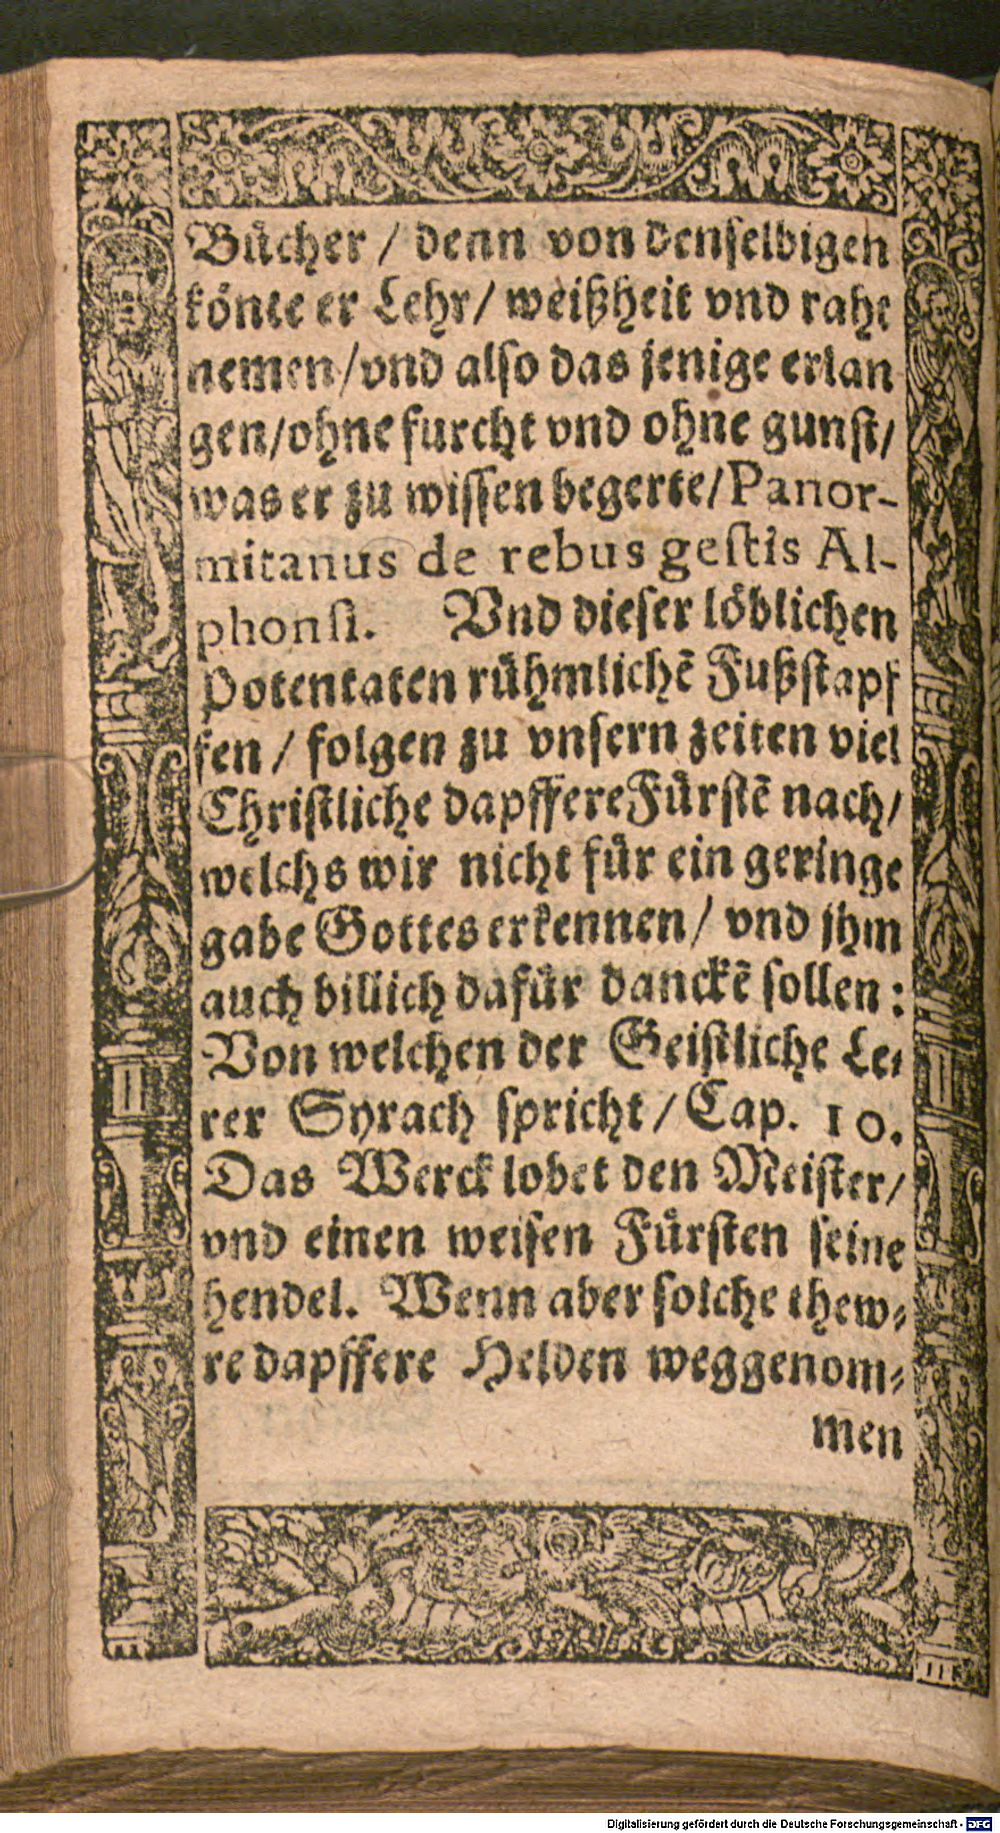 Bücher / denn von denselbigen
könte er Lehr / weißheit vnd raht
nemen / vnd also das jenige erlan
gen / ohne furcht vnd ohne gunst /
was er zu wissen begerte / Panor-
mitanus de rebus gestis Al-
phonsi. Vnd dieser löblichen
Potentaten rühmlichē Fußstapf
fen / folgen zu vnsern zeiten viel
Christliche dapffere Fürstē nach /
welchs wir nicht für ein geringe
gabe Gottes erkennen / vnd jhm
auch billich dafür danckē sollen :
Von welchen der Geistliche Le-
rer Syrach spricht / Cap. 10.
Das Werck lobet den Meister /
vnd einen weisen Fürsten seine
hendel. Wenn aber solche thew-
re dapffere Helden weggenom-
men
Digitalisierung gefördert durch die Deutsche Forschungsgemeinschaft - DFG